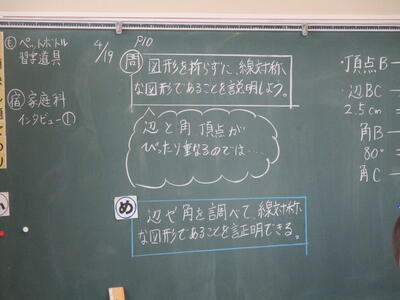 モ ペットボトル
習字道具
宿 家庭科
インタビュー①
4/19
P10
問 図形を折らずに、線対称
な図形であることを説明しよう。
辺と角 頂点が
ぴったり重なるのでは・・・
め 辺や角を調べて、線対称
な図形であることを証明できる。
・頂点B―
・辺BC―
2.5cm =
角B―
80° =
・角C―